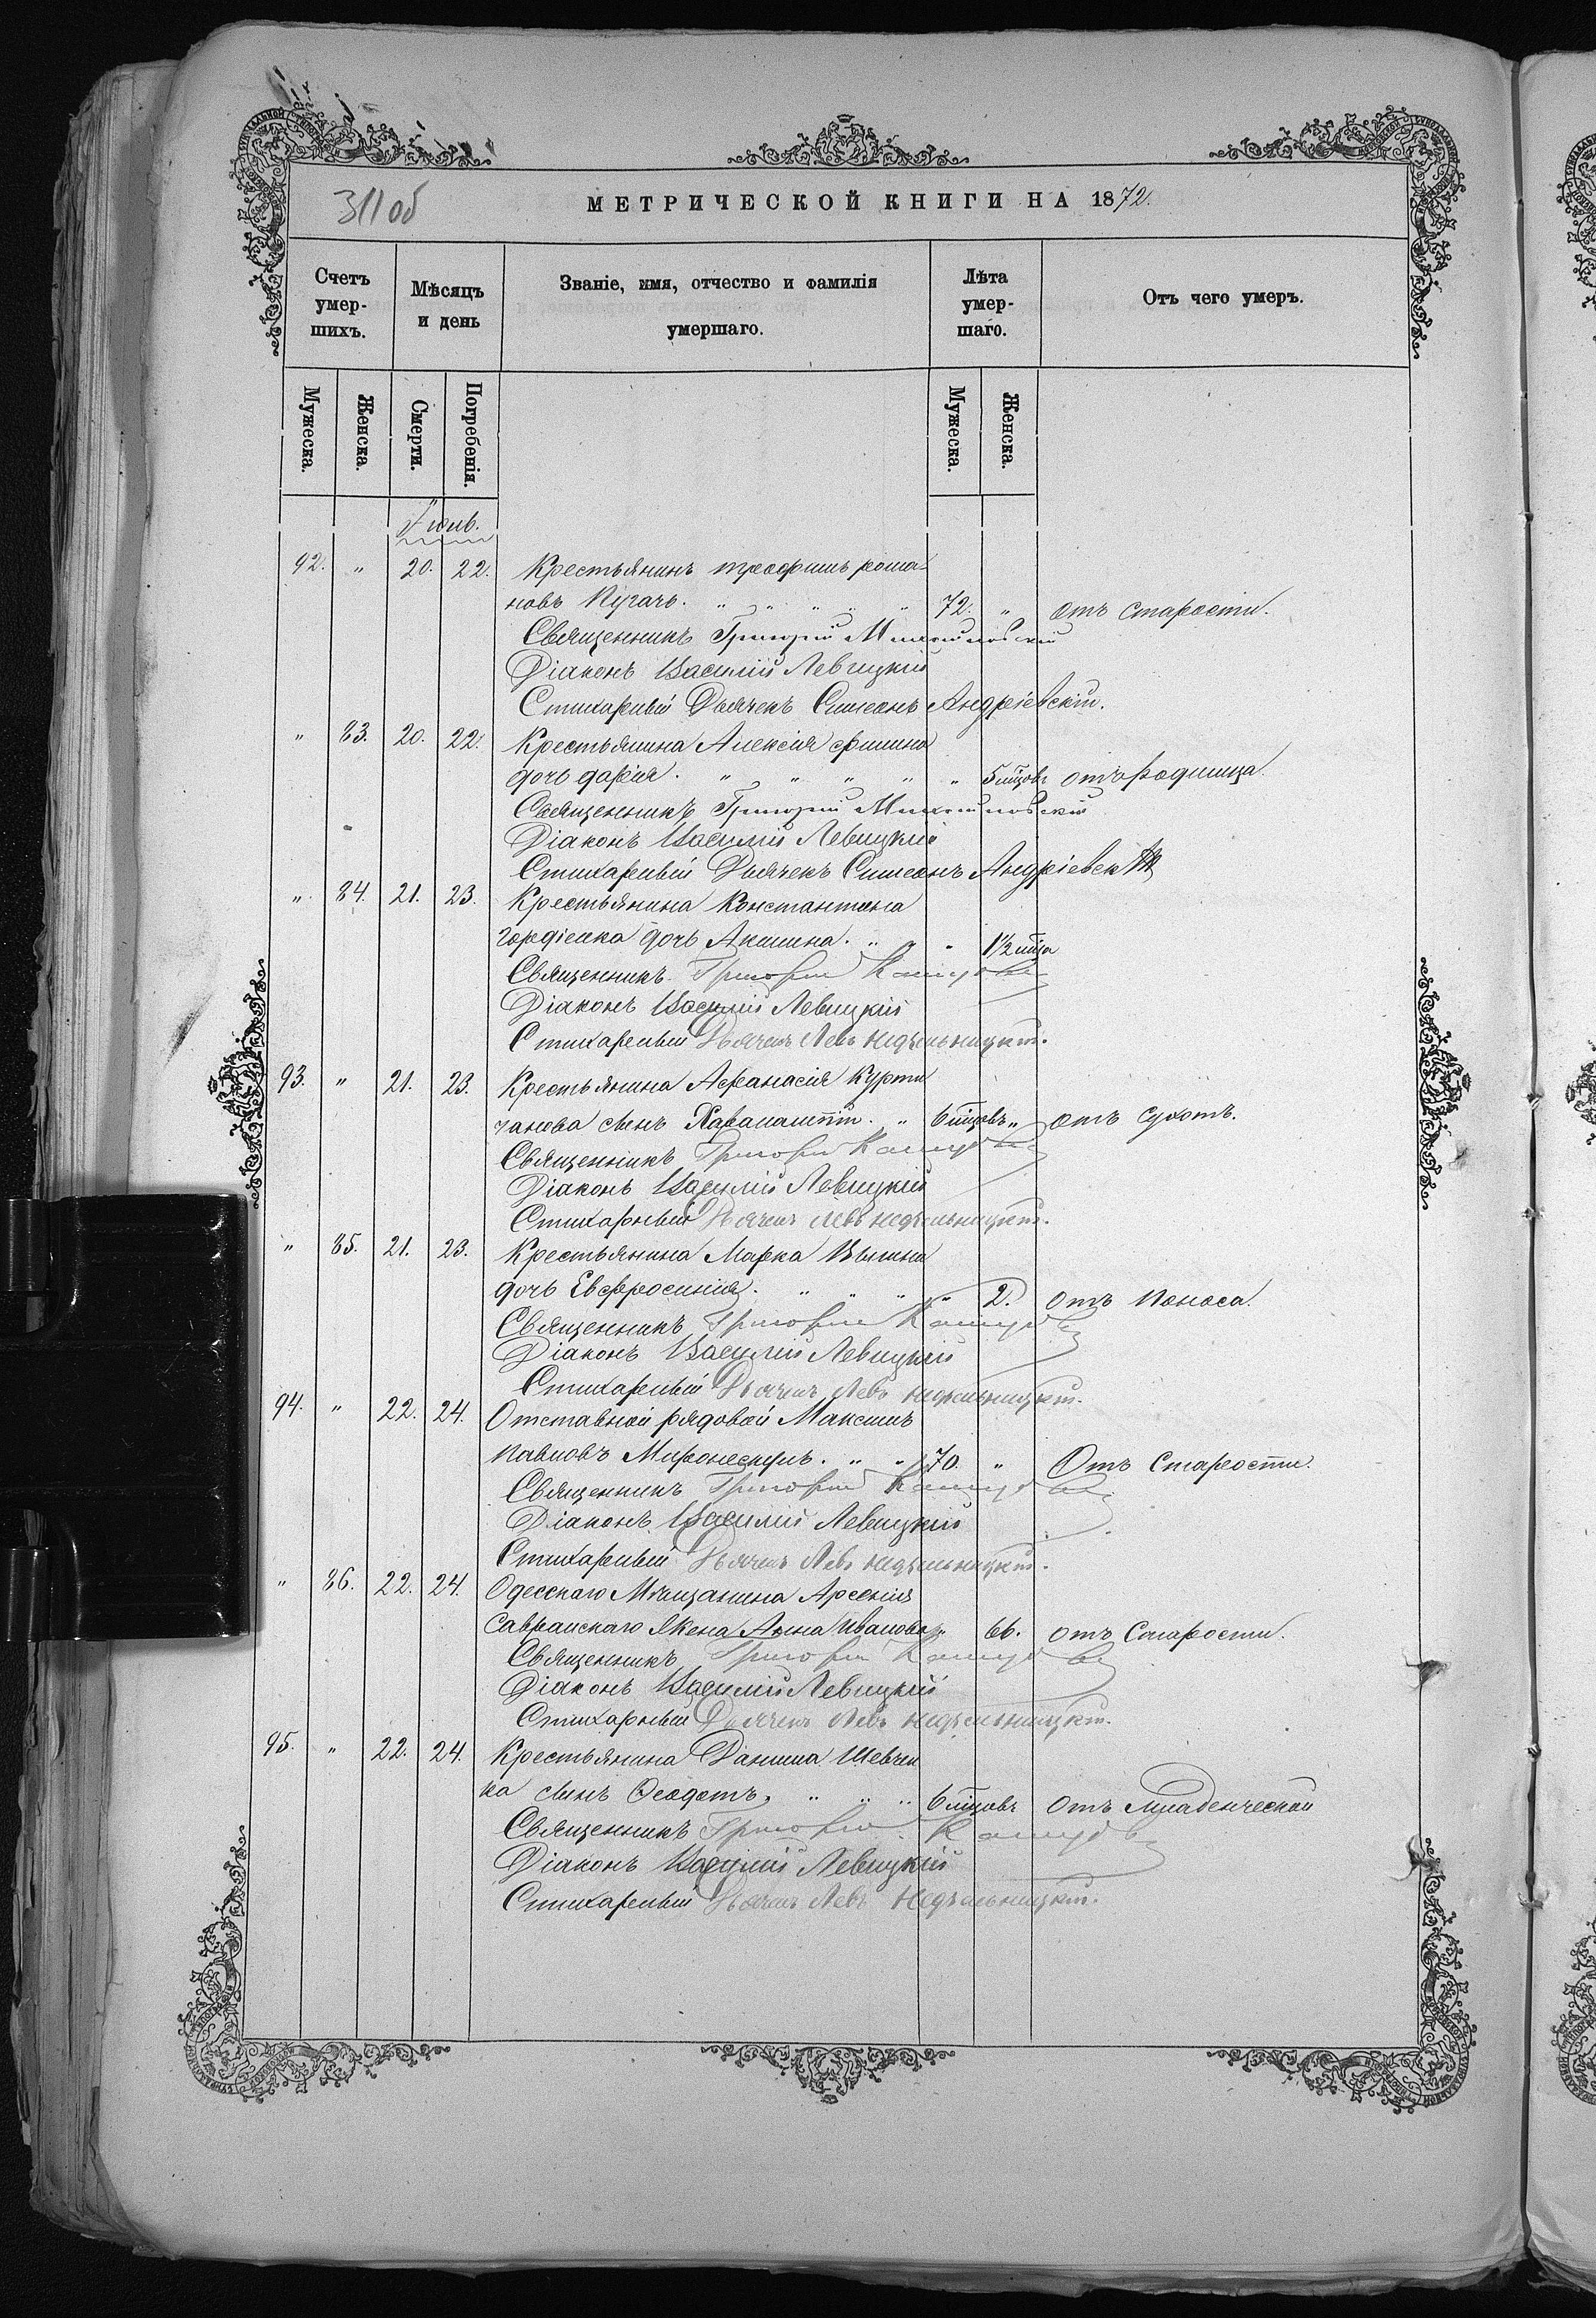 311 об
МЕТРИЧЕСКОЙ КНИГИ НА 1872.
Счетъ умер- шихъ.
Мѣсяцъ и день
Званіе, имя, отчество и фамилія умершаго.
Лѣта умер- шаго.
Отъ чего умеръ.
Мужеска. Женска. Смерти. Погребенія. Мужеска. Женска.
92. " 20. 22. Крестьянинъ трофимъ рома-
новъ Пугачъ. " " " " " 72. " отъ старости.
Священникъ Григорій
Діаконъ Василій Левицкій
Стихарный Дьячекъ Симеонъ Андріевскій.
" 83. 20. 22. Крестьянина Алексія
дочь дарія. " " " " " 5 мцовъ отъ родимца.
Священникъ Григорій
Діаконъ Василій Левицкій
Стихарный Дьячекъ Симеонъ Андріевскій
" 84. 21. 23. Крестьянина Константина
гордіенка дочь Акилина. " " " 1½ мца
Священникъ Григорій
Діаконъ Василій Левицкій
Стихарный Дьячекъ Левъ Недѣльницкій.
93. " 21. 23. Крестьянина Афанасія Курти
чанова сынъ Харалампій. " 6 мцовъ " отъ сухотъ.
Священникъ Григорій
Діаконъ Василій Левицкій
Стихарный Дьячекъ Левъ Недѣльницкій.
" 85. 21. 23. Крестьянина Марка
дочь Евфросинія. " " " " 2. отъ поноса.
Священникъ Григорій
Діаконъ Василій Левицкій
Стихарный Дьячекъ Левъ Недѣльницкій.
94. " 22. 24. Отставной рядовой Максимъ
Павловъ Миронескулъ. " " 70. " Отъ Старости.
Священникъ Григорій
Діаконъ Василій Левицкій
Стихарный Дьячекъ Левъ Недѣльницкій.
" 86. 22. 24. Одесскаго Мѣщанина Арсенія
Савранскаго Жена Анна Иванова " 66. отъ Старости.
Священникъ Григорій
Діаконъ Василій Левицкій
Стихарный Дьячекъ Левъ Недѣльницкій.
95. " 22. 24. Крестьянина Данила Шевчен
ка сынъ Феодотъ. " " " 6 мцовъ Отъ младенческой
Священникъ Григорій
Діаконъ Василій Левицкій
Стихарный Дьячекъ Левъ Недѣльницкій.